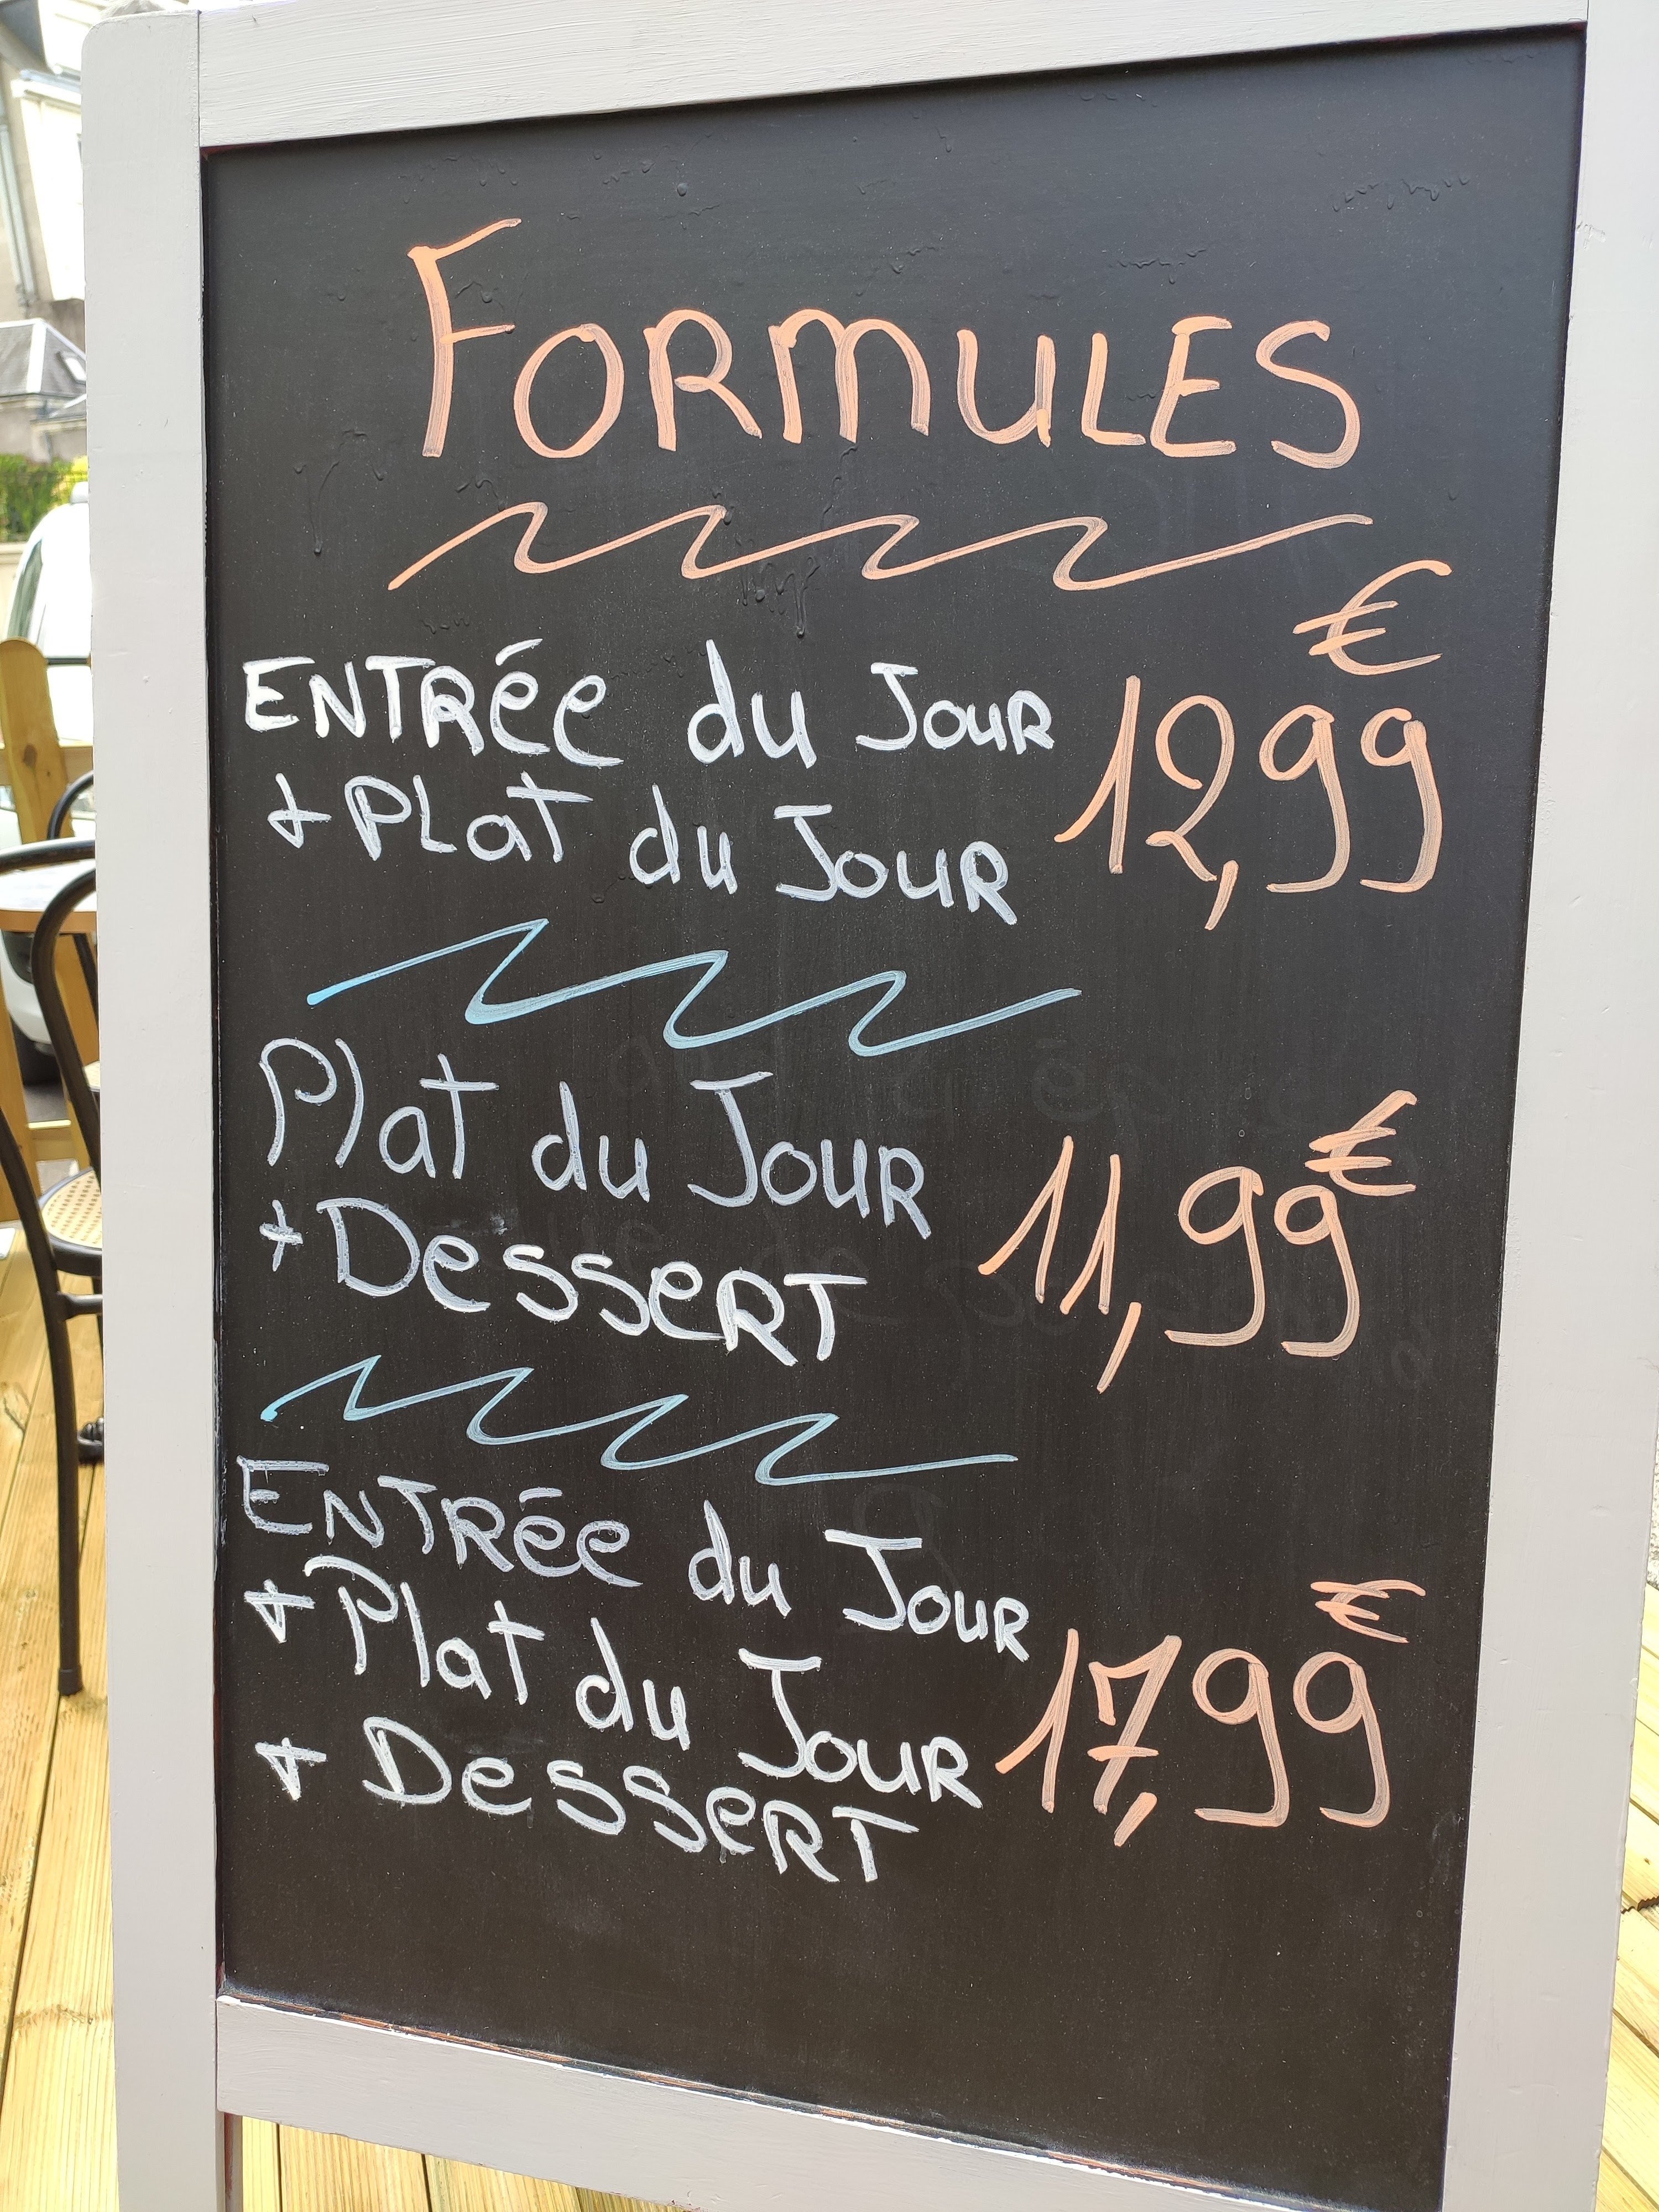 FORMULES
ENTRÉE du JOUR 12,99€
+ PLAT du JOUR
Plat du JOUR 11,99€
+ DESSERT
ENTRÉE du JOUR
+ Plat du JOUR 17,99€
+ DESSERT